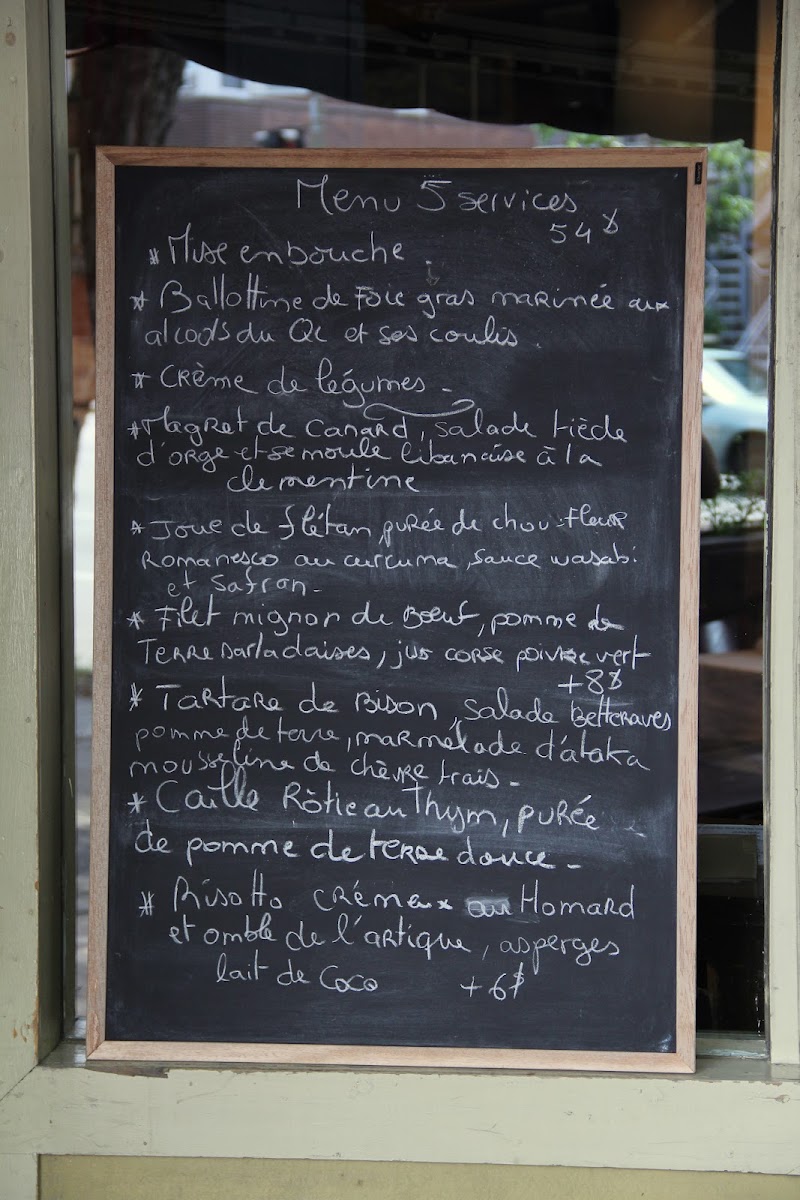 Menu 5 services
54$
* Mise en bouche.
* Ballottine de Foie gras marinée aux
alcools du Qc et ses coulis.
* Crème de légumes -
* Magret de canard, salade tiède
d'orge et semoule libanaise à la
clementine
* Joue de flétan, purée de chou-fleur
Romanesco au curcuma, sauce wasabi
et Safran -
* Filet mignon de Bœuf, pomme de
Terre sarladaises, jus corse poivre vert
+8$
* Tartare de Bison, salade betteraves
pomme de terre, marmelade d'ataka
mousseline de chèvre frais -
* Caille Rôtie au Thym, purée
de pomme de terre douce -
* Risotto crémeux au Homard
et omble de l'artique, asperges
lait de Coco +6$